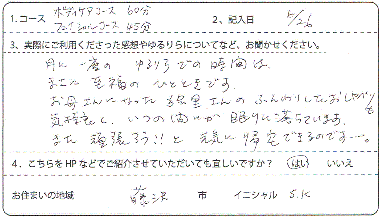 1.コース ボディケアコース 60分
フェイシャルコース 45分
2、記入日 5/26
3、実際にご利用くださった感想やゆるりらについてなど、お聞かせください。
月に一度の ゆるりらでの時間は、
まさに 至福の ひとときです。
お母さんになった さんの ふんわりしたおしゃべりも
気持良く、いつの間にか 眠りに落ちています。
また 頑張ろう!! と 元気に 帰宅できるのです…。
4、こちらをHPなどでご紹介させていただいても宜しいですか? はい いいえ
お住まいの地域 藤沢 市 イニシャル S.K